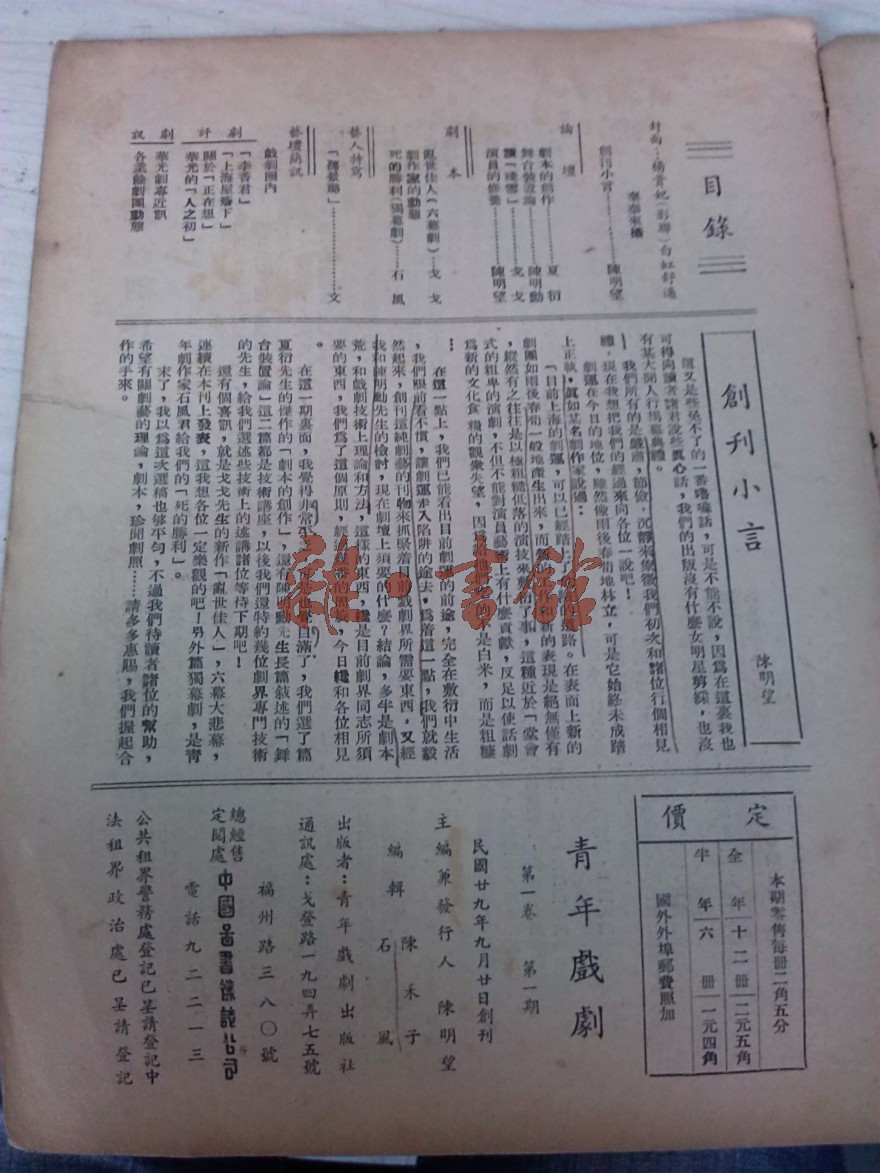 目錄
封面：楊貴妃(影聯)白虹舒適
創刊小言…………陳明望
論壇
劇本的創作…………夏衍
舞台裝置論…………陳明勳
演員的修養…………陳明望
劇本
亂世佳人(六幕劇)…戈戈
劇作家的動態
死的勝利(獨幕劇)…石風
藝人特寫
…………文
藝壇簡訊
戲劇圈內
劇評
「李香君」
「上海屋簷下」
關於「正在想」
華光的「人之初」
劇訊
華光劇專近訊
各業餘劇團動態
創刊小言
陳明望
這又是些免不了的一番嚕囌話，可是不能不說，因為在這裏我也
可得向讀者諸君說些真心話，我們的出版沒有什麼女明星剪綵，也沒
有某大聞人行揭幕典禮。
我們所有的是緘肅，節儉，沉靜來象徵我們初次和諸位行個相見
禮，現在我想把我們的經過來向各位一說吧！
劇運在今日的地位，雖然像雨後春荀地林立，可是它始終未成踏
上正軌，真如某名劇作家說過：
「目前上海的劇運，可以已經踏上了 道路。在表面上新的
劇團如雨後春荀一般地產生出來，而 和新的表現是絕無僅有
，縱然有之往往是以極粗糙低落的演技來 了事，這種近於「堂會
式的粗卑的演劇，不但不能對演員藝術上有什麼貢獻，反足以使話劇
為新的文化食糧的觀衆失望，因為 是白米，而是粗糠
…
在這一點上，我們已能看出目前劇運的前途，完全在敷衍中生活
，我們眼前看不慣，讓劇運走入陷阱的途去，為着這一點，我們就毅
然起來，創刊這純劇藝的刊物來抓緊着 前戲劇界所需要東西，又經
我和陳明勳先生的檢討，現在劇壇上須要的什麼？結論，多半是劇本
荒，和戲劇技術上理論和方法，這樣的東西， 是目前劇界同志所須
要的東西，我們為了這個原則，經 今日纔和各位相見
。
在這一期裏面，我覺得非常 白滿了，我們選了篇
夏衍先生的傑作的「劇本的創作」，還有陳明勳先生長篇敍述的「舞
台裝置論」這二篇都是技術講座，以後我們還特約幾位劇界專門技術
的先生，給我們選述些技術上的述講諸位等待下期吧！
還有個喜訊，就是戈戈先生的新作「亂世佳人」，六幕大悲幕，
連續在本刊上發表，這我想各位一定樂觀的吧！另外篇獨幕劇，是青
年劇作家石風君給我們的「死的勝利」。
末了，我以為這次選稿也够平勻，不過我們待讀者諸位的幫助，
希望有關劇藝的理論，劇本，珍聞劇照……請多多惠賜，我們握起合
作的手來。
定價
本期零售每冊二角五分
全年十二冊二元五角
半年六冊一元四角
國外外埠郵費照加
青年戲劇
第一卷 第一期
民國廿九年九月廿日創刊
主編兼發行人 陳明望
編輯 陳禾子 石風
出版者：青年戲劇出版社
通訊處：戈登路一九四弄七五號
總經售
定閱處
中國圖書雜誌公司
福州路三八〇號
電話九二二一三
公共租界警務處登記已呈請登記中
法租界政治處已呈請登記
雜·書館